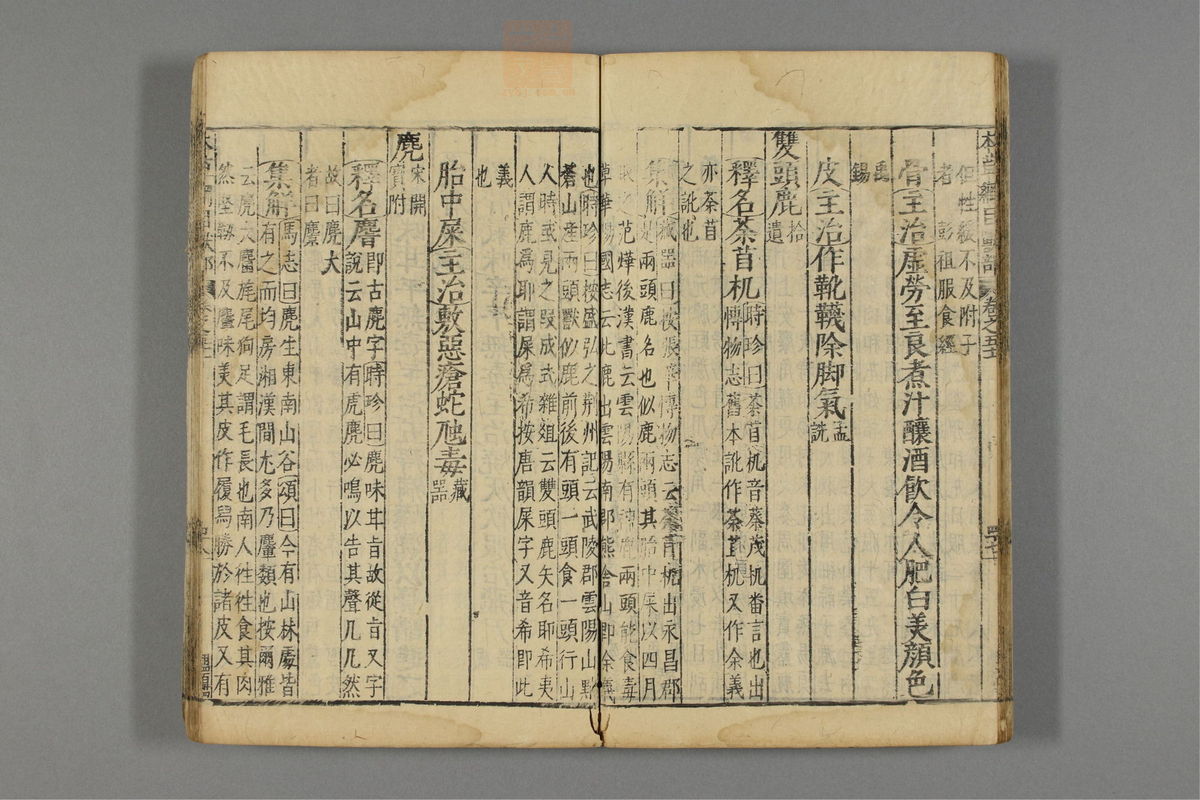 但性緩不及附子
者彭祖服食經
骨主治虛勞至良煮汁釀酒飲令人肥白美顏色
禹錫
皮主治作靴韈除脚氣孟詵
雙頭鹿拾遺
釋名荼苜机時珍曰荼苜机音蔡茂机番言也出
愽物志舊本訛作荼苴机又作余義
亦荼苜
之訛也
集解藏器曰按張華愽物志云荼苜机出永昌郡
是兩頭鹿名也似鹿兩頭其胎中屎以四月
取之范煒後漢書云雲陽縣有神鹿兩頭能食毒
草華陽國志云此鹿出雲陽南郡熊舍山即余義
也時珍曰按盛弘之荆州記云武陵郡雲陽山點
蒼山産兩頭獸似鹿前後有頭一頭食一頭行山
人時或見之叚成式雜俎云雙頭鹿矢名耶希夷
人謂鹿爲耶謂屎爲希按唐韻屎字又音希即此
義
也
胎中屎主治敷惡瘡蛇虺毒藏器
麂宋開寶附
釋名麐即古麂字時珍曰麂味甘旨故從旨又字
說云山中有虎麂必鳴以告其聲几几然
故曰麂大
者曰麖
集解馬志曰麂生東南山谷頌曰今有山林處皆
有之而均房湘漢間尤多乃麞類也按爾雅
云麂大麕旄尾狗足謂毛長也南人徃徃食其肉
然堅韌不及麞味美其皮作履舄勝於諸皮又有